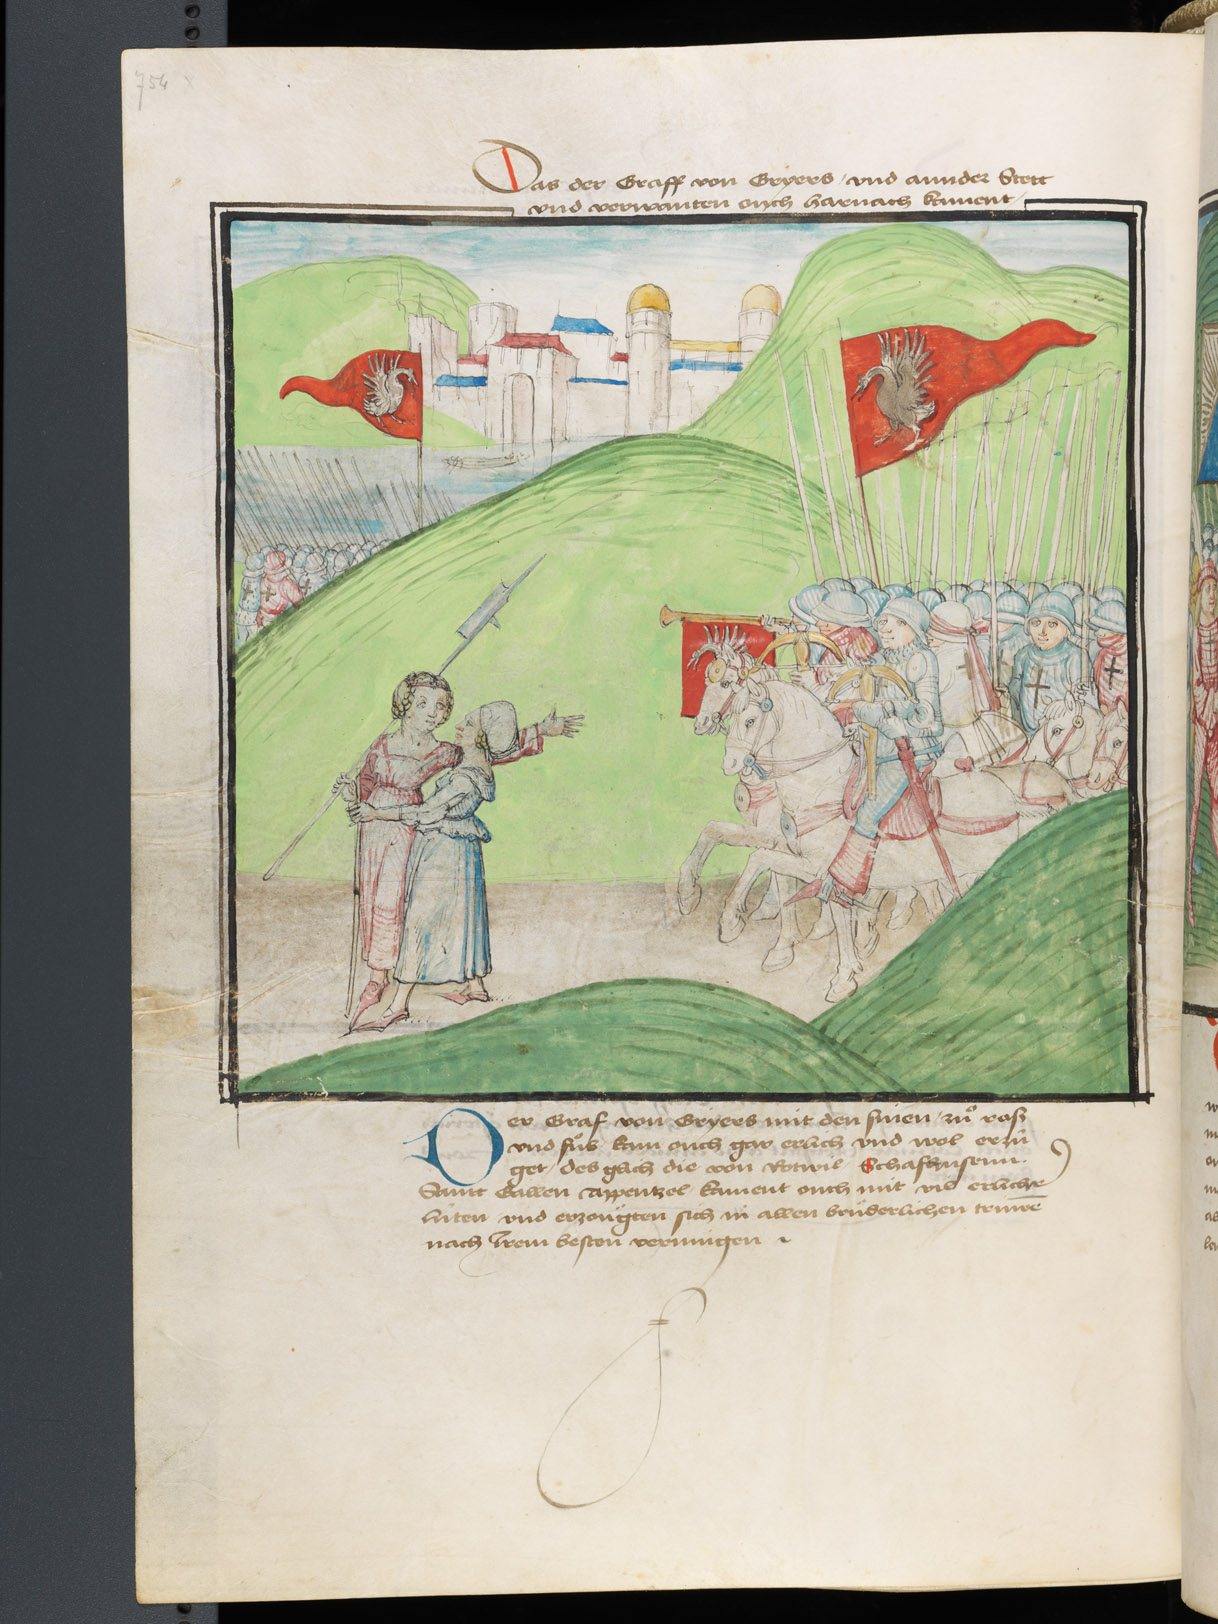 754
Das der Graff von Gryers / vnd annder Stett
vnd verwanten ouch harnach kament /
Der Graf von Gryers mit den sinen / zuͦ roß
vnd fuͦß kam ouch gar erlich vnd wol erzü
get / des glich die von Rotwil Schafhusenn
Sannt Gallen Appentzel kament ouch mit vil erlicher
lüten vnd erzoügten sich in allen brüderlichen trüwē
nach Irem besten vermügen